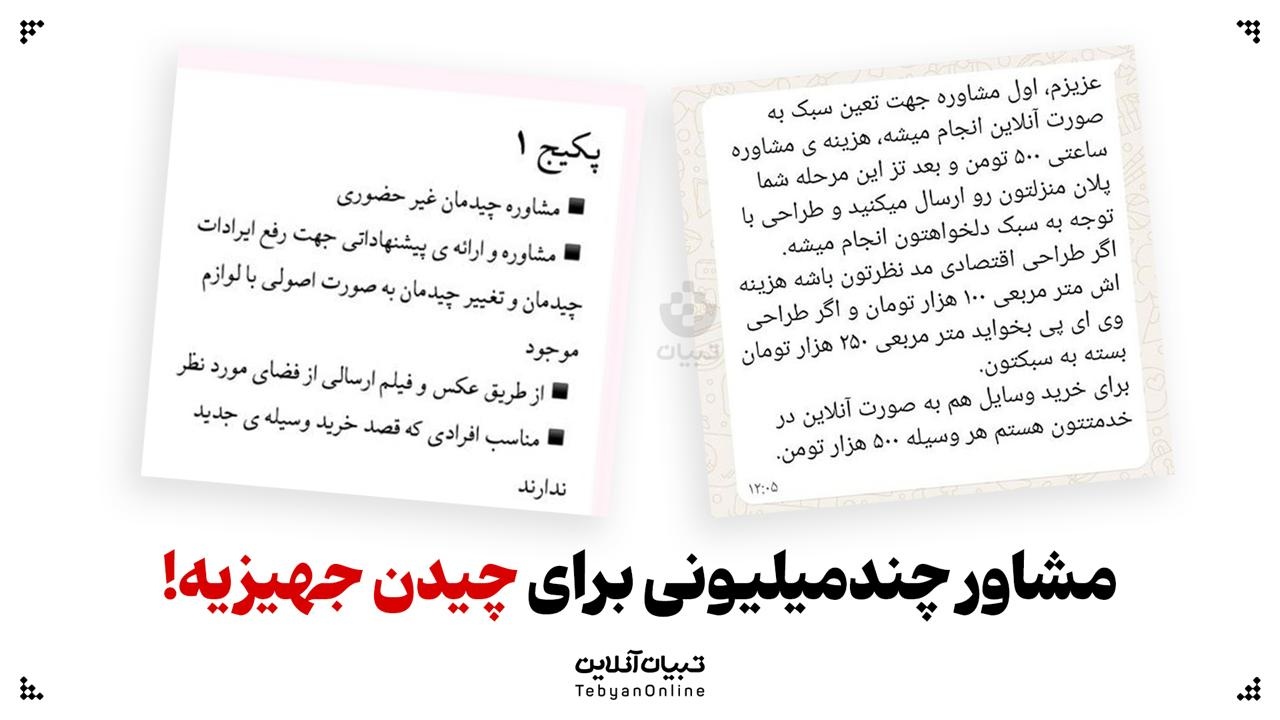 عزیزم، اول مشاوره جهت تعین سبک به
صورت آنلاین انجام میشه، هزینه ی مشاوره
ساعتی ۵۰۰ تومن و بعد تز این مرحله شما
پلان منزلتون رو ارسال میکنید و طراحی با
توجه به سبک دلخواهتون انجام میشه.
اگر طراحی اقتصادی مد نظرتون باشه هزینه
اش متر مربعی ۱۰۰ هزار تومان و اگر طراحی
وی ای پی بخواید متر مربعی ۲۵۰ هزار تومان
بسته به سبکتون.
برای خرید وسایل هم به صورت آنلاین در
خدمتتون هستم هر وسیله ۵۰۰ هزار تومن.
۱۲:۰۵
پکیج ۱
■ مشاوره چیدمان غیر حضوری
■ مشاوره و ارائه ی پیشنهاداتی جهت رفع ایرادات
چیدمان و تغییر چیدمان به صورت اصولی با لوازم
موجود
■ از طریق عکس و فیلم ارسالی از فضای مورد نظر
■ مناسب افرادی که قصد خرید وسیله ی جدید
ندارند
تبیان
مشاور چندمیلیونی برای چیدن جهیزیه!
تبیان‌آنلاین
TebyanOnline